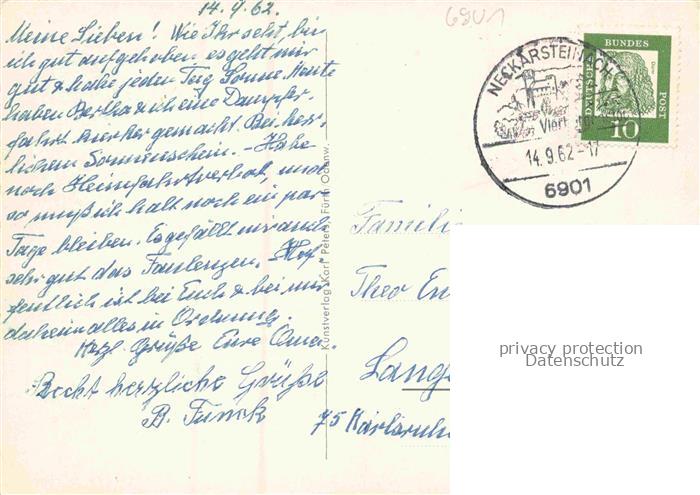 14.9.62.
Meine Lieben! Wie Ihr seht, bin
ich gut aufgehoben es geht mir
gut & habe jeden Tag Sonne. Heute
haben Bertha & ich eine Dampfer-
fahrt hierher gemacht. Bei herr-
lichem Sonnenschein. – Habe
noch Heimfahrtverbot, und
so muß ich halt noch ein par
Tage bleiben. Es gefällt mir auch
sehr gut das Faulenzen. – Hof-
fentlich ist bei Euch & bei mir
daheim alles in Ordnung.
Herzl. Grüße Eure Oma.
Recht herzliche Grüße
B. Funck
Kunstverlag Karl Peters, Fürth Odenw.
6901
NECKARSTEINACH
14.9.62-17
6901
DEUTSCHE BUNDESPOST
10
Familie
Theo En
Lange
75 Karlsruhe
privacy protection
Datenschutz